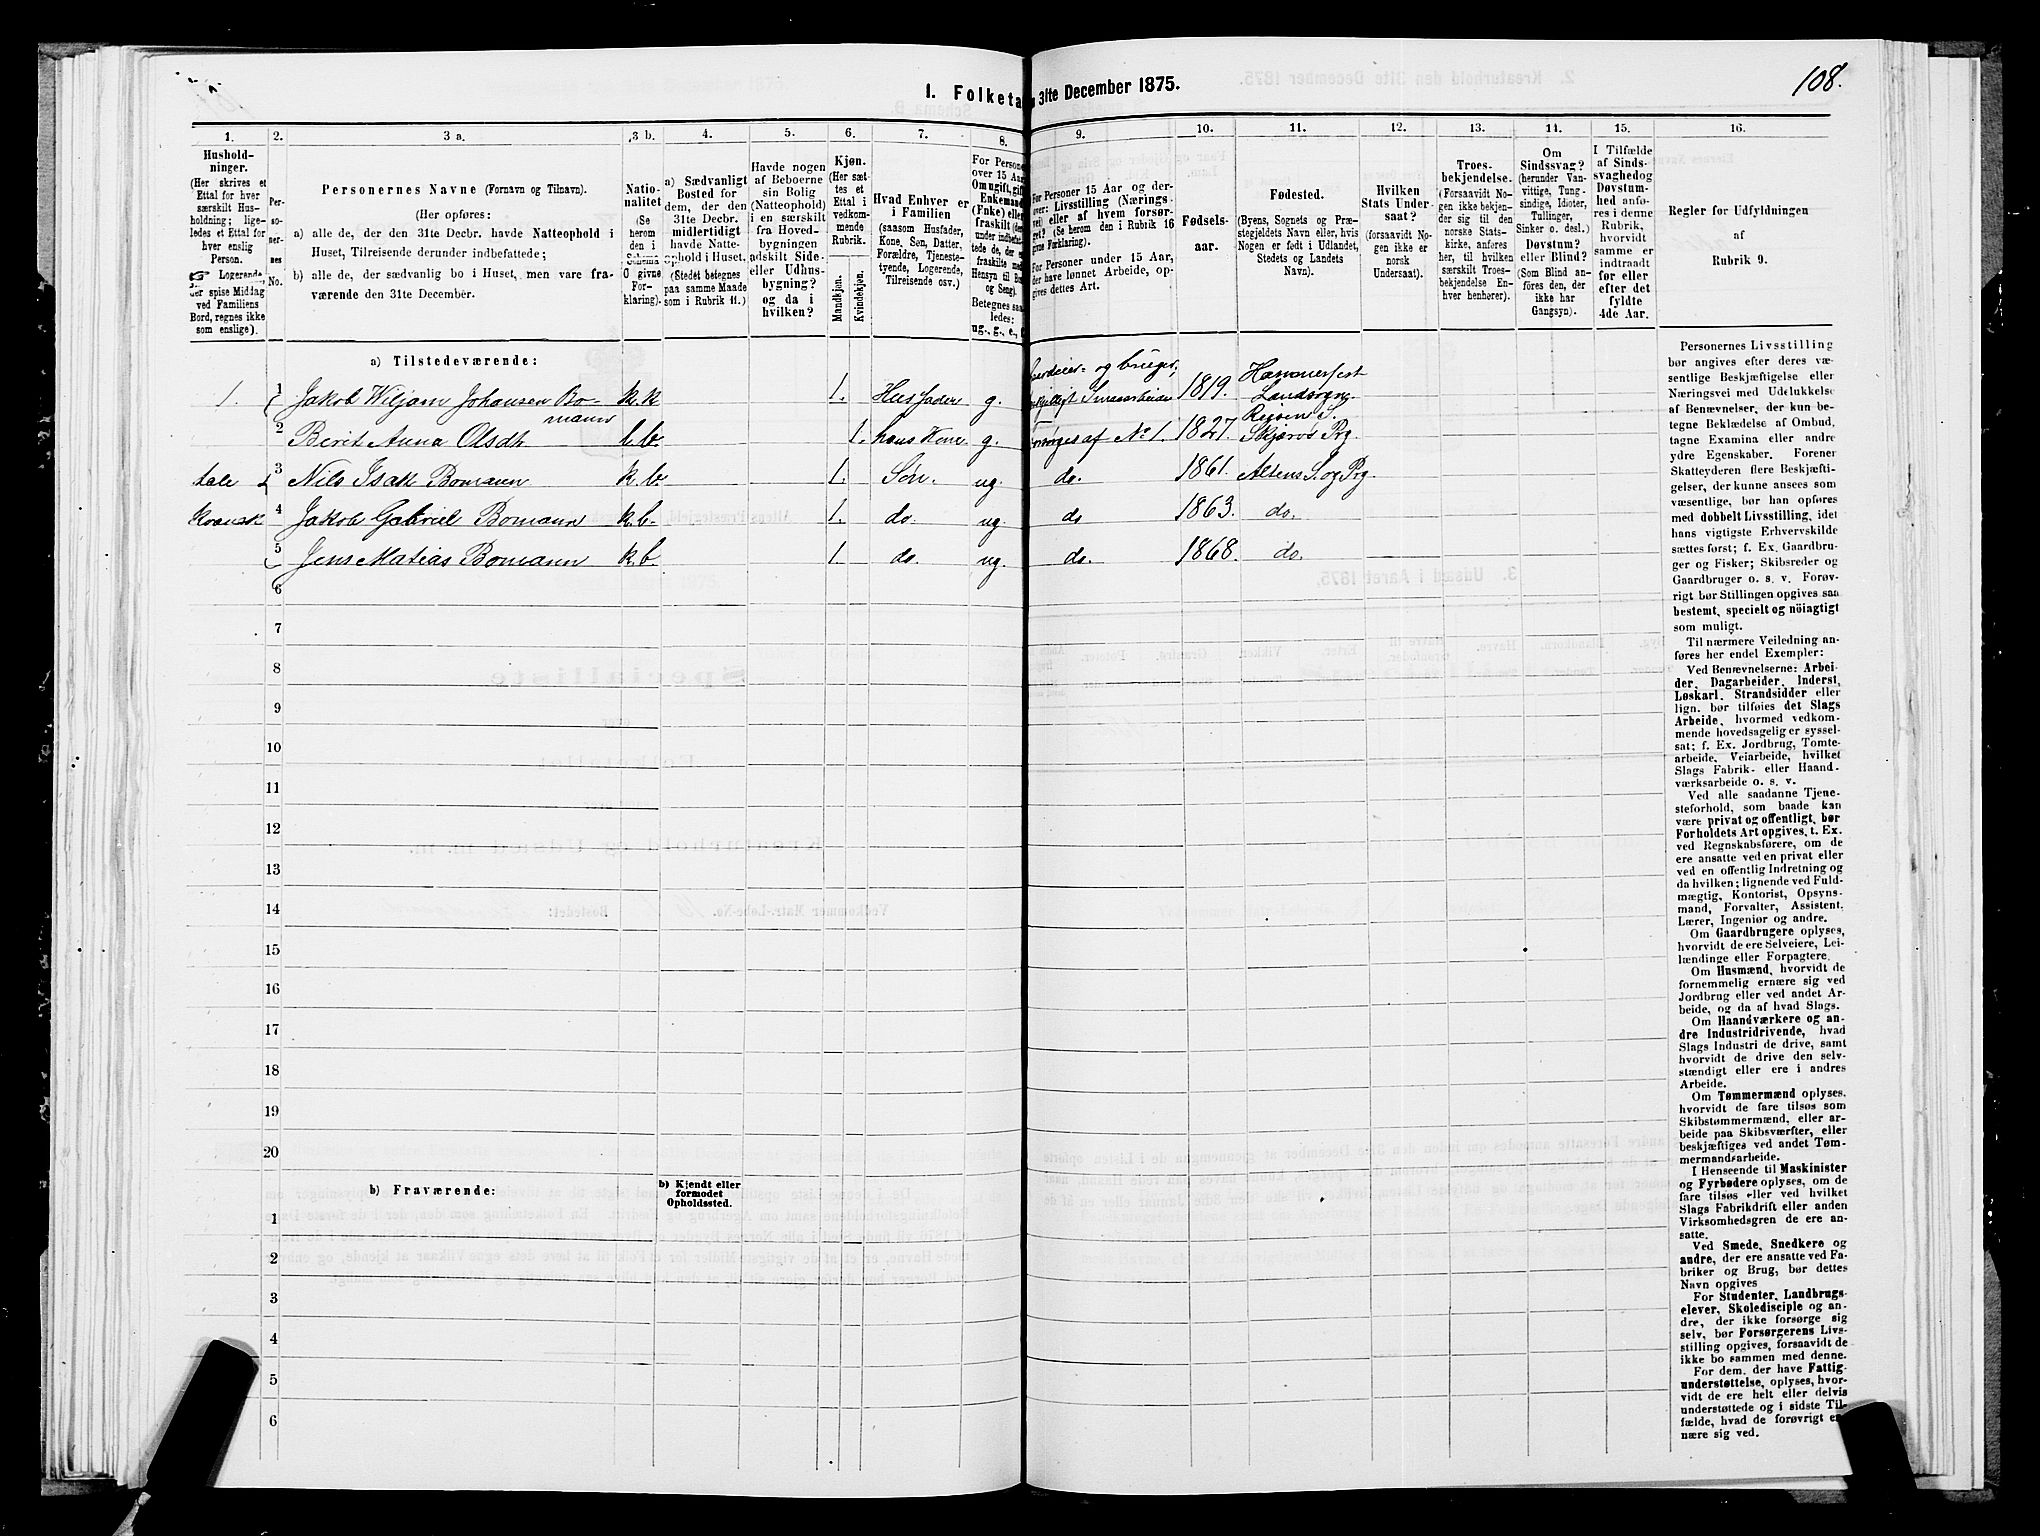 108.
1. Folketa
31te December 1875.
1.
2.
3 a.
3 b.
4.
5.
6.
7.
8.
9.
10.
11.
12.
13.
14.
15.
16.
Hushold-
ninger.
(Her skrives et
Ettal for hver
særskilt Hus-
holdning; lige-
ledes et Ettal for
hver enslig
Person.
☞ Logerende,
der spise Middag
ved Familiens
Bord, regnes ikke
som enslige).
Per-
so-
ner-
nes
No.
Personernes Navne (Fornavn og Tilnavn).
(Her opføres:
a) alle de, der den 31te Decbr. havde Natteophold i
Huset, Tilreisende derunder indbefattede;
b) alle de, der sædvanlig bo i Huset, men vare fra-
værende den 31te December.
Natio-
nalitet
(Se
herom
den i
Schema
O givne
For-
klaring).
a) Sædvanligt
Bosted for
dem, der den
31te Decbr.
midlertidigt
havde Natte-
ophold i Huset.
(Stedet betegnes
paa samme Maade
som i Rubrik 11.)
Havde nogen
af Beboerne
sin Bolig
(Natteophold)
i en særskilt
fra Hoved-
bygningen
adskilt Side-
eller Udhus-
bygning?
og da i
hvilken?
Kjøn.
(Her sæt-
tes et
Ettal i
vedkom-
mende
Rubrik.
Mandkjøn.
Kvindekjøn.
Hvad Enhver er
i Familien
(saasom Husfader,
Kone, Søn, Datter,
Forældre, Tjeneste-
tyende, Logerende,
Tilreisende osv.)
For Persone
over 15 Aar
Om ugift, gift
Enkemand
(Fnke) eller
fraskilt (de
under indbefat-
tede de, der e
fraskilte me
Hensyn til Bo
og Seng).
Betegnes saa
ledes:
ug., g., e.,
For Personer 15 Aar og der-
over: Livsstilling (Nærings-
vei) eller af hvem forsør-
get? (Se herom den i Rubrik 16
givne Forklaring).
For Personer under 15 Aar,
der have lønnet Arbeide, op-
gives dettes Art.
Fødsels-
aar.
Fødested.
(Byens, Sognets og Præ-
stegjeldets Navn eller, hvis
Nogen er født i Udlandet,
Stedets og Landets
Navn).
Hvilken
Stats Under-
saat?
(forsaavidt No-
gen ikke er
norsk
Undersaat).
Troes-
bekjendelse.
(Forsaavidt No-
gen ikke bekjen-
der sig til den
norske Stats-
kirke, anføres
her, til hvilken
særskilt Troes-
bekjendelse En-
hver henhører).
Om
Sindssvag?
(herunder Van-
vittige, Tung-
sindige, Idioter,
Tullinger,
Sinker o. desl.)
Døvstum?
eller Blind?
(Som Blind an-
føres den, der
ikke har
Gangsyn).
I Tilfælde
af Sinds-
svaghed og
Døvstum-
hed anfø-
res i denne
Rubrik,
hvorvidt
samme er
indtraadt
før eller
efter det
fyldte
4de Aar.
Regler for Udfyldningen
af
Rubrik 9.
a) Tilstedeværende:
1. 1 Jakob Wiljam Johansen Bo-
mann k.k 1. Husfader g. og bruger, Smaaarbeider 1819. Hammerfest
Landsogn
2 Berit Anna Olsdt 1. hans Kone g. Forsørges af No 1. 1827. Reisen S.
Skjærvø Prg.
tale 3 Nils Isak Bomann k.b. 1. Søn. ug. do. 1861. Altens S. og Prg.
Kvænsk 4 Jakob Gabriel Bomann k.b. 1. do. ug. do 1863. do.
5 Jens Matias Bomann k.b. 1. do. ug. do. 1868. do.
6
7
8
9
10
11
12
13
14
15
16
17
18
19
20
b) Fraværende:
b) Kjendt eller
formodet
Opholdssted.
1
2
3
4
5
6
Personernes Livsstilling
bør angives efter deres væ-
sentlige Beskjæftigelse eller
Næringsvei med Udelukkelse
af Benævnelser, der kun be-
tegne Beklædelse af Ombud,
tagne Examina eller andre
ydre Egenskaber. Forener
Skatteyderen flere Beskjæfti-
gelser, der kunne ansees som
væsentlige, bør han opføres
med dobbelt Livsstilling, idet
hans vigtigste Erhvervskilde
sættes først; f. Ex. Gaardbru-
ger og Fisker; Skibsreder og
Gaardbruger o. s. v. Forøv-
rigt bør Stillingen opgives saa
bestemt, specielt og nöiagtigt
som muligt.
Til nærmere Veiledning an-
føres her endel Exempler:
Ved Benævnelserne: Arbei-
der, Dagarbeider, Inderst,
Løskarl, Strandsidder eller
lign. bør tilføies det Slags
Arbeide, hvormed vedkom-
mende hovedsagelig er syssel-
sat; f. Ex. Jordbrug, Tomte-
arbeide, Veiarbeide, hvilket
Slags Fabrik- eller Haand-
værksarbeide o. s. v.
Ved alle saadanne Tjene-
steforhold, som baade kan
være privat og offentligt, bør
Forholdets Art opgives, t. Ex.
ved Regnskabsførere, om de
ere ansatte ved en privat eller
ved en offentlig Indretning og
da hvilken; lignende ved Fuld-
mægtig, Kontorist, Opsyns-
mand, Forvalter, Assistent,
Lærer, Ingeniør og andre.
Om Gaardbrugere oplyses,
hvorvidt de ere Selveiere, Lei-
lændinge eller Forpagtere.
Om Husmænd, hvorvidt de
fornemmelig ernære sig ved
Jordbrug eller ved andet Ar-
beide, og da af hvad Slags.
Om Haandværkere og an-
dre Industridrivende, hvad
Slags Industri de drive, samt
hvorvidt de drive den selv-
stændigt eller ere i andres
Arbeide.
Om Tømmermænd oplyses,
hvorvidt de fare tilsøs som
Skibstømmermænd, eller ar-
beide paa Skibsværfter, eller
beskjæftiges ved andet Tøm-
mermandsarbeide.
I Henseende til Maskinister
og Fyrbødere oplyses, om de
fare tilsøs eller ved hvilket
Slags Fabrikdrift eller anden
Virksomhedsgren de ere an-
satte.
Ved Smede, Snedkere og
andre, der ere ansatte ved Fa-
briker og Brug, bør dettes
Navn opgives
For Studenter, Landbrugs-
elever, Skoledisciple og an-
dre, der ikke forsørge sig
selv, bør Forsørgerens Livs-
stilling opgives, forsaavidt de
ikke bo sammen med denne.
For dem, der have Fattig-
understøttelse, oplyses, hvor-
vidt de ere helt eller delvis
understøttede og i sidste Til-
fælde, hvad de forøvrigt er-
nære sig ved.